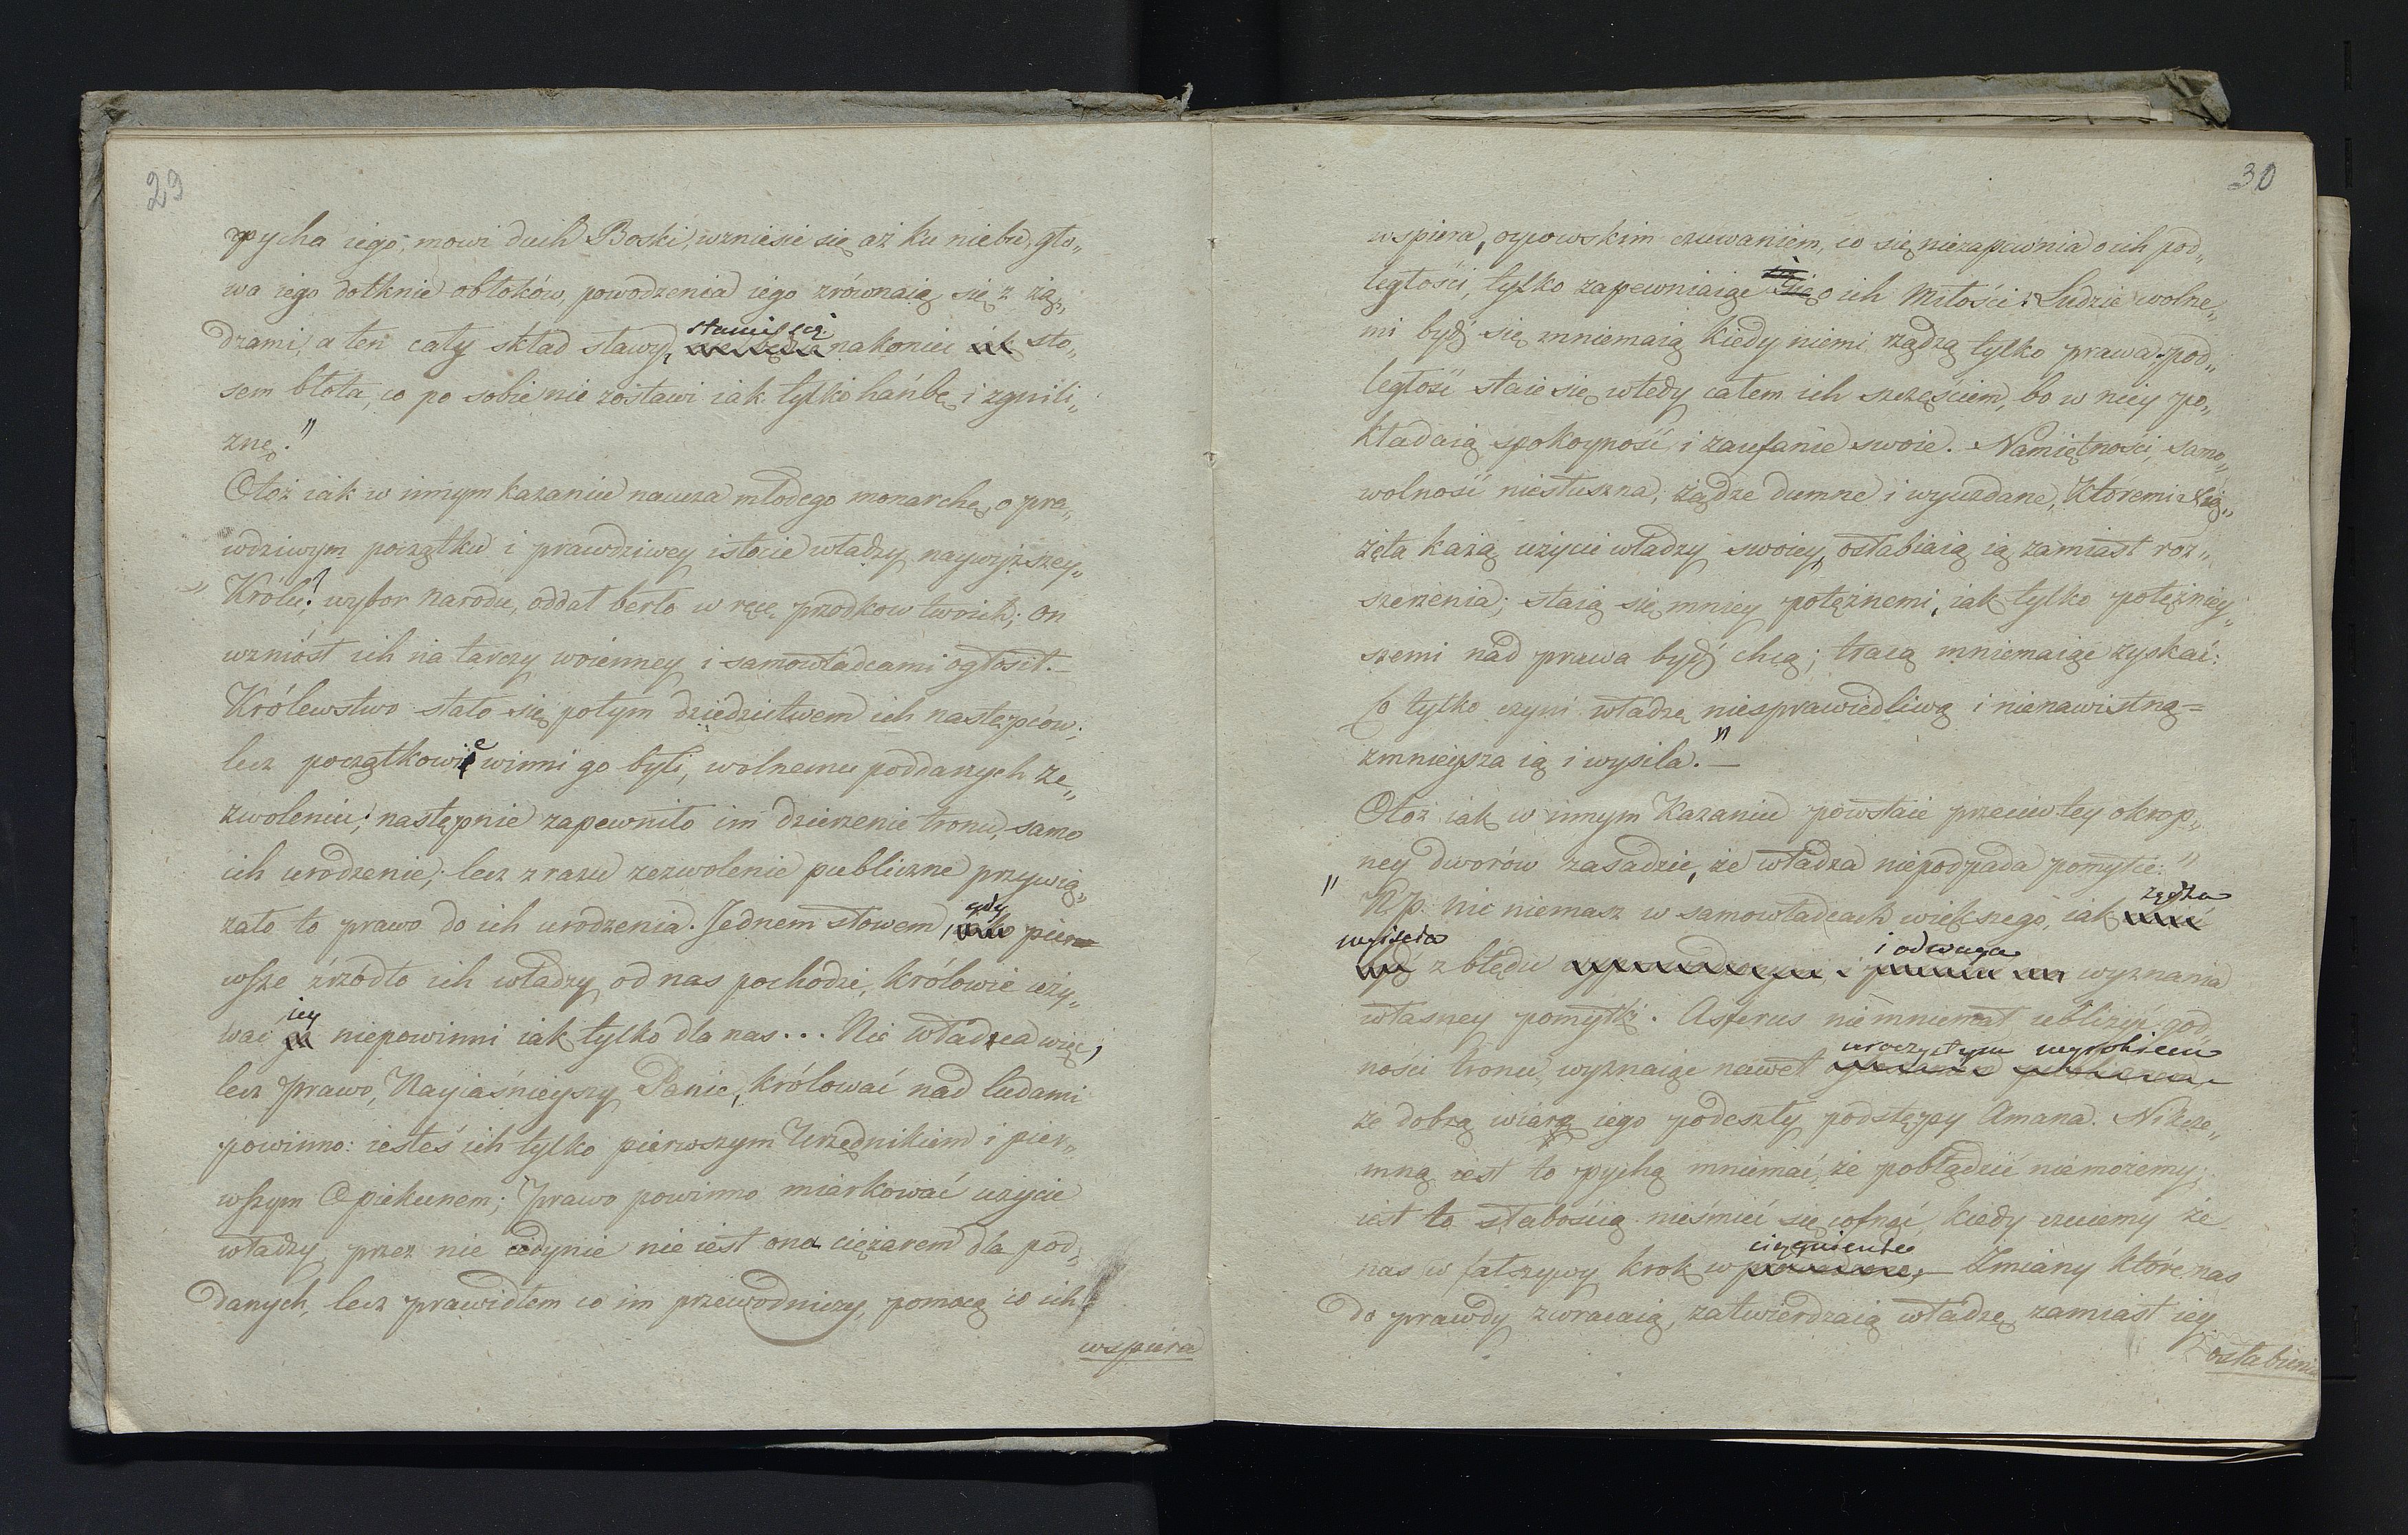 29
pycha iego, mowi duch Boski, wzniesie się aż ku niebu, gło„
wa iego dotknie obłoków, powodzenia iego zrównaią się z żą„
stanie się
drzami, a ten cały skład sławy, nakoniec sto„
sem błota, co po sobie nie zostawi iak tylko hańbę i zgnili„
znę."
Otoż iak w innym kazaniu naucza młodego monarchę, o pra„
wdziwym początku i prawdziwey istocie władzy naywyższey„
„ Królu! wybor narodu, oddał berło w ręce przodkow twoich; on
wzniósł ich na tarczy woienney i samowładcami ogłosił. –
Królewstwo stało się potym dziedzictwem ich następców;
lecz początkowie winni go byli, wolnemu poddanych ze„
zwoleniu; następnie zapewniło im dzierżenie tronu, samo
ich urodzenie; lecz z razu zezwolenie publiczne przywią„
gdy
zało to prawo do ich urodzenia. Jednem słowem, pier
wsze źrzódło ich władzy od nas pochodzi, królowie uży„
iey
wać niepowinni iak tylko dla nas... Nie władzca więc,
lecz prawo, Nayiaśnieyszy Panie, królować nad ludami
powinno: iesteś ich tylko pierwszym Urzędnikiem i pier„
wszym Opiekunem; Prawo powinno miarkować użycie
władzy, przez nie iedynie nie iest ona ciężarem dla pod„
danych, lecz prawidłem co im przewodniczy, pomocą co ich
wspiera
30
wspiera, oycowskim czuwaniem, co się niezapewnia o ich pod„
ległości, tylko zapewniaiąc się o ich Miłości: Ludzie wolne„
mi bydź się mniemaią kiedy niemi rządzą tylko prawa: pod„
ległość staie się wtedy całem ich szczęściem, bo w niey po„
kładaią spokoyność i zaufanie swoie. Namiętności, samo„
wolność niesłuszna, żądze dumne i wyuzdane, któremi Xią„
żęta każą użycie władzy swoiey, osłabiaią ią zamiast roz„
szerzenia; staią się mniey potężnemi, iak tylko potężniey„
szemi nad prawa bydź chcą; tracą mniemaiąc zyskać:
co tylko czyni władzę niesprawiedliwą i nienawistną =
zmnieysza ią i wysila." –
Otoż iak w innym Kazaniu powstaie przeciw tey okrop„
ney dworów zasadzie, że władza niepodpada pomyłce: "
żądza
" N.P. nic niemasz w samowładcach większego, iak
wyiścia i odwaga
z błędu wyznania
własney pomyłki. Asferus nie mniemał ubliżyć god
uroczystym wyrokiem
ności tronu, wyznaiąc nawet
że dobrą wiarę iego podeszły podstępy Amana. Nikcze„
mną iest to pychą mniemać, że pobłądzić niemożemy;
iest to słabością nieśmieć się cofnąć kiedy czuiemy że
ciągnięto
nas w fałszywy krok w – Zmiany które nas
do prawdy zwracaią, zatwierdzaią władzę, zamiast iey
osłabienia